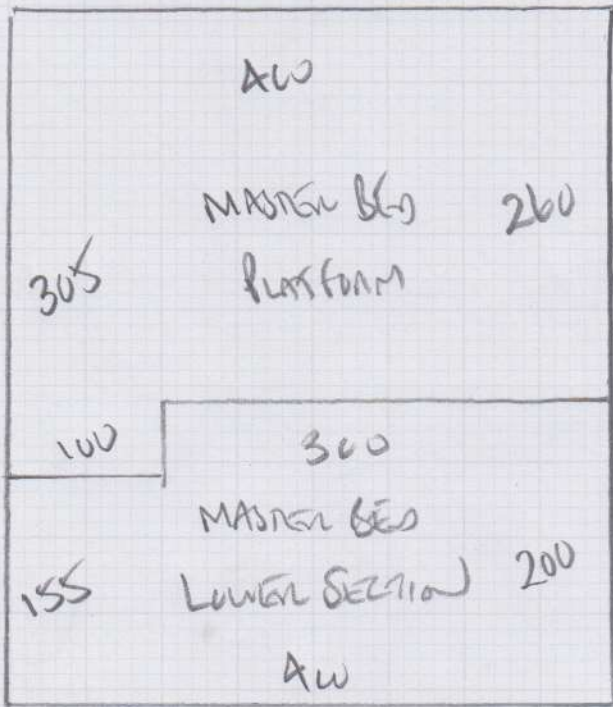 400
MASTER BED
260
PLATFORM
305
100
300
MASTER BED
LOWER SECTION
200
155
400